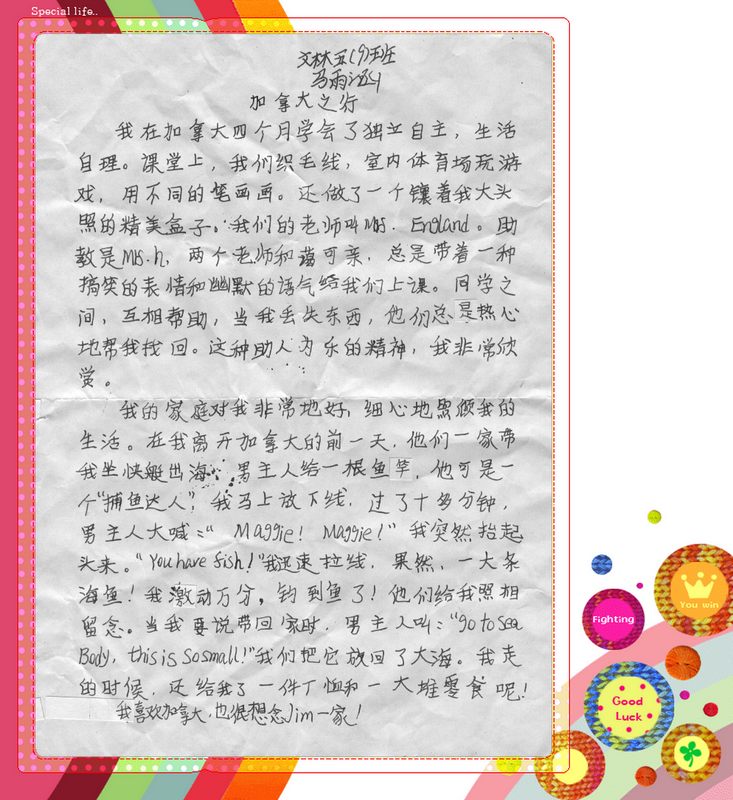 Special life..
文林五(9)班
马雨
加拿大之行
我在加拿大四个月学会了独立自主，生活
自理。课堂上，我们织毛线，室内体育场玩游
戏，用不同的笔画画。还做了一个镶着我大头
照的精美盒子。我们的老师叫Ms. England。助
教是Ms.h，两个老师和蔼可亲，总是带着一种
搞笑的表情和幽默的语气给我们上课。同学之
间，互相帮助，当我丢失东西，他们总是热心
地帮我找回。这种助人为乐的精神，我非常欣
赏。
我的家庭对我非常地好，细心地照顾我的
生活。在我离开加拿大的前一天，他们一家带
我坐快艇出海，男主人给一根鱼竿，他可是一
个“捕鱼达人”，我马上放下线，过了十多分钟，
男主人大喊：“Maggie! Maggie!”我突然抬起
头来。“You have fish!”我迅速拉线，果然，一大条
海鱼！我激动万分，钓到鱼了！他们给我照相
留念。当我要说带回家时，男主人叫：“go to sea
Body, this is so small!”我们把它放回了大海。我走
的时候，还给我了一件T恤和一大堆零食呢！
我喜欢加拿大，也很想念Jim一家！
You win
Fighting
Good
Luck